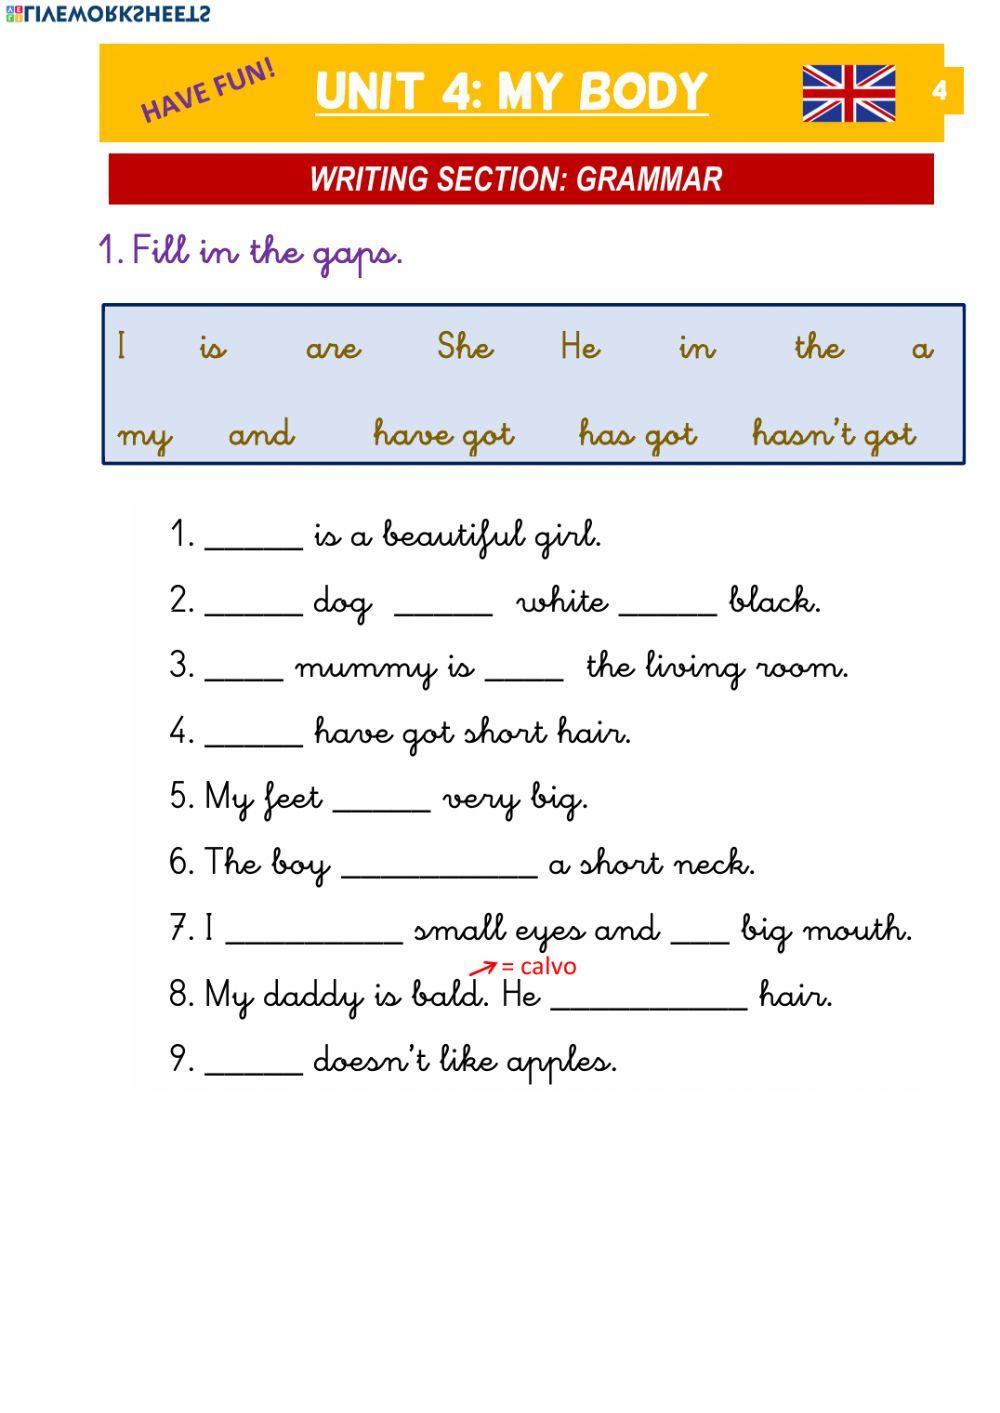 LIVEWORKSHEETS
HAVE FUN!
UNIT 4: MY BODY
4
WRITING SECTION: GRAMMAR
1. Fill in the gaps.
I is are She He in the a
my and have got has got hasn't got
1. _____ is a beautiful girl.
2. _____ dog _____ white _____ black.
3. ____ mummy is ____ the living room.
4. _____ have got short hair.
5. My feet _____ very big.
6. The boy __________ a short neck.
7. I _________ small eyes and ___ big mouth.
= calvo
8. My daddy is bald. He __________ hair.
9. _____ doesn't like apples.